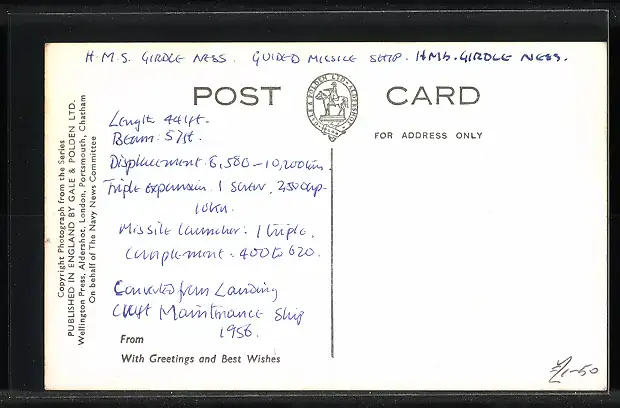 H.M.S. GIRDLE NESS. GUIDED MISSILE SHIP. HMS. GIRDLE NESS.
POST CARD
GALE & POLDEN LTD. ALDERSHOT
FOR ADDRESS ONLY
Length 441ft.
Beam: 57ft.
Displacement: 8,580 - 10,200 tons.
Triple expansion. 1 screw, 2,500hp -
10kn.
Missile launcher: 1 triple.
Complement: 400 to 620.
Converted from Landing
Craft Maintenance Ship
1956.
From
With Greetings and Best Wishes
Copyright Photograph from the Series
PUBLISHED IN ENGLAND BY GALE & POLDEN LTD.
Wellington Press, Aldershot, London, Portsmouth, Chatham
On behalf of The Navy News Committee
£1-50